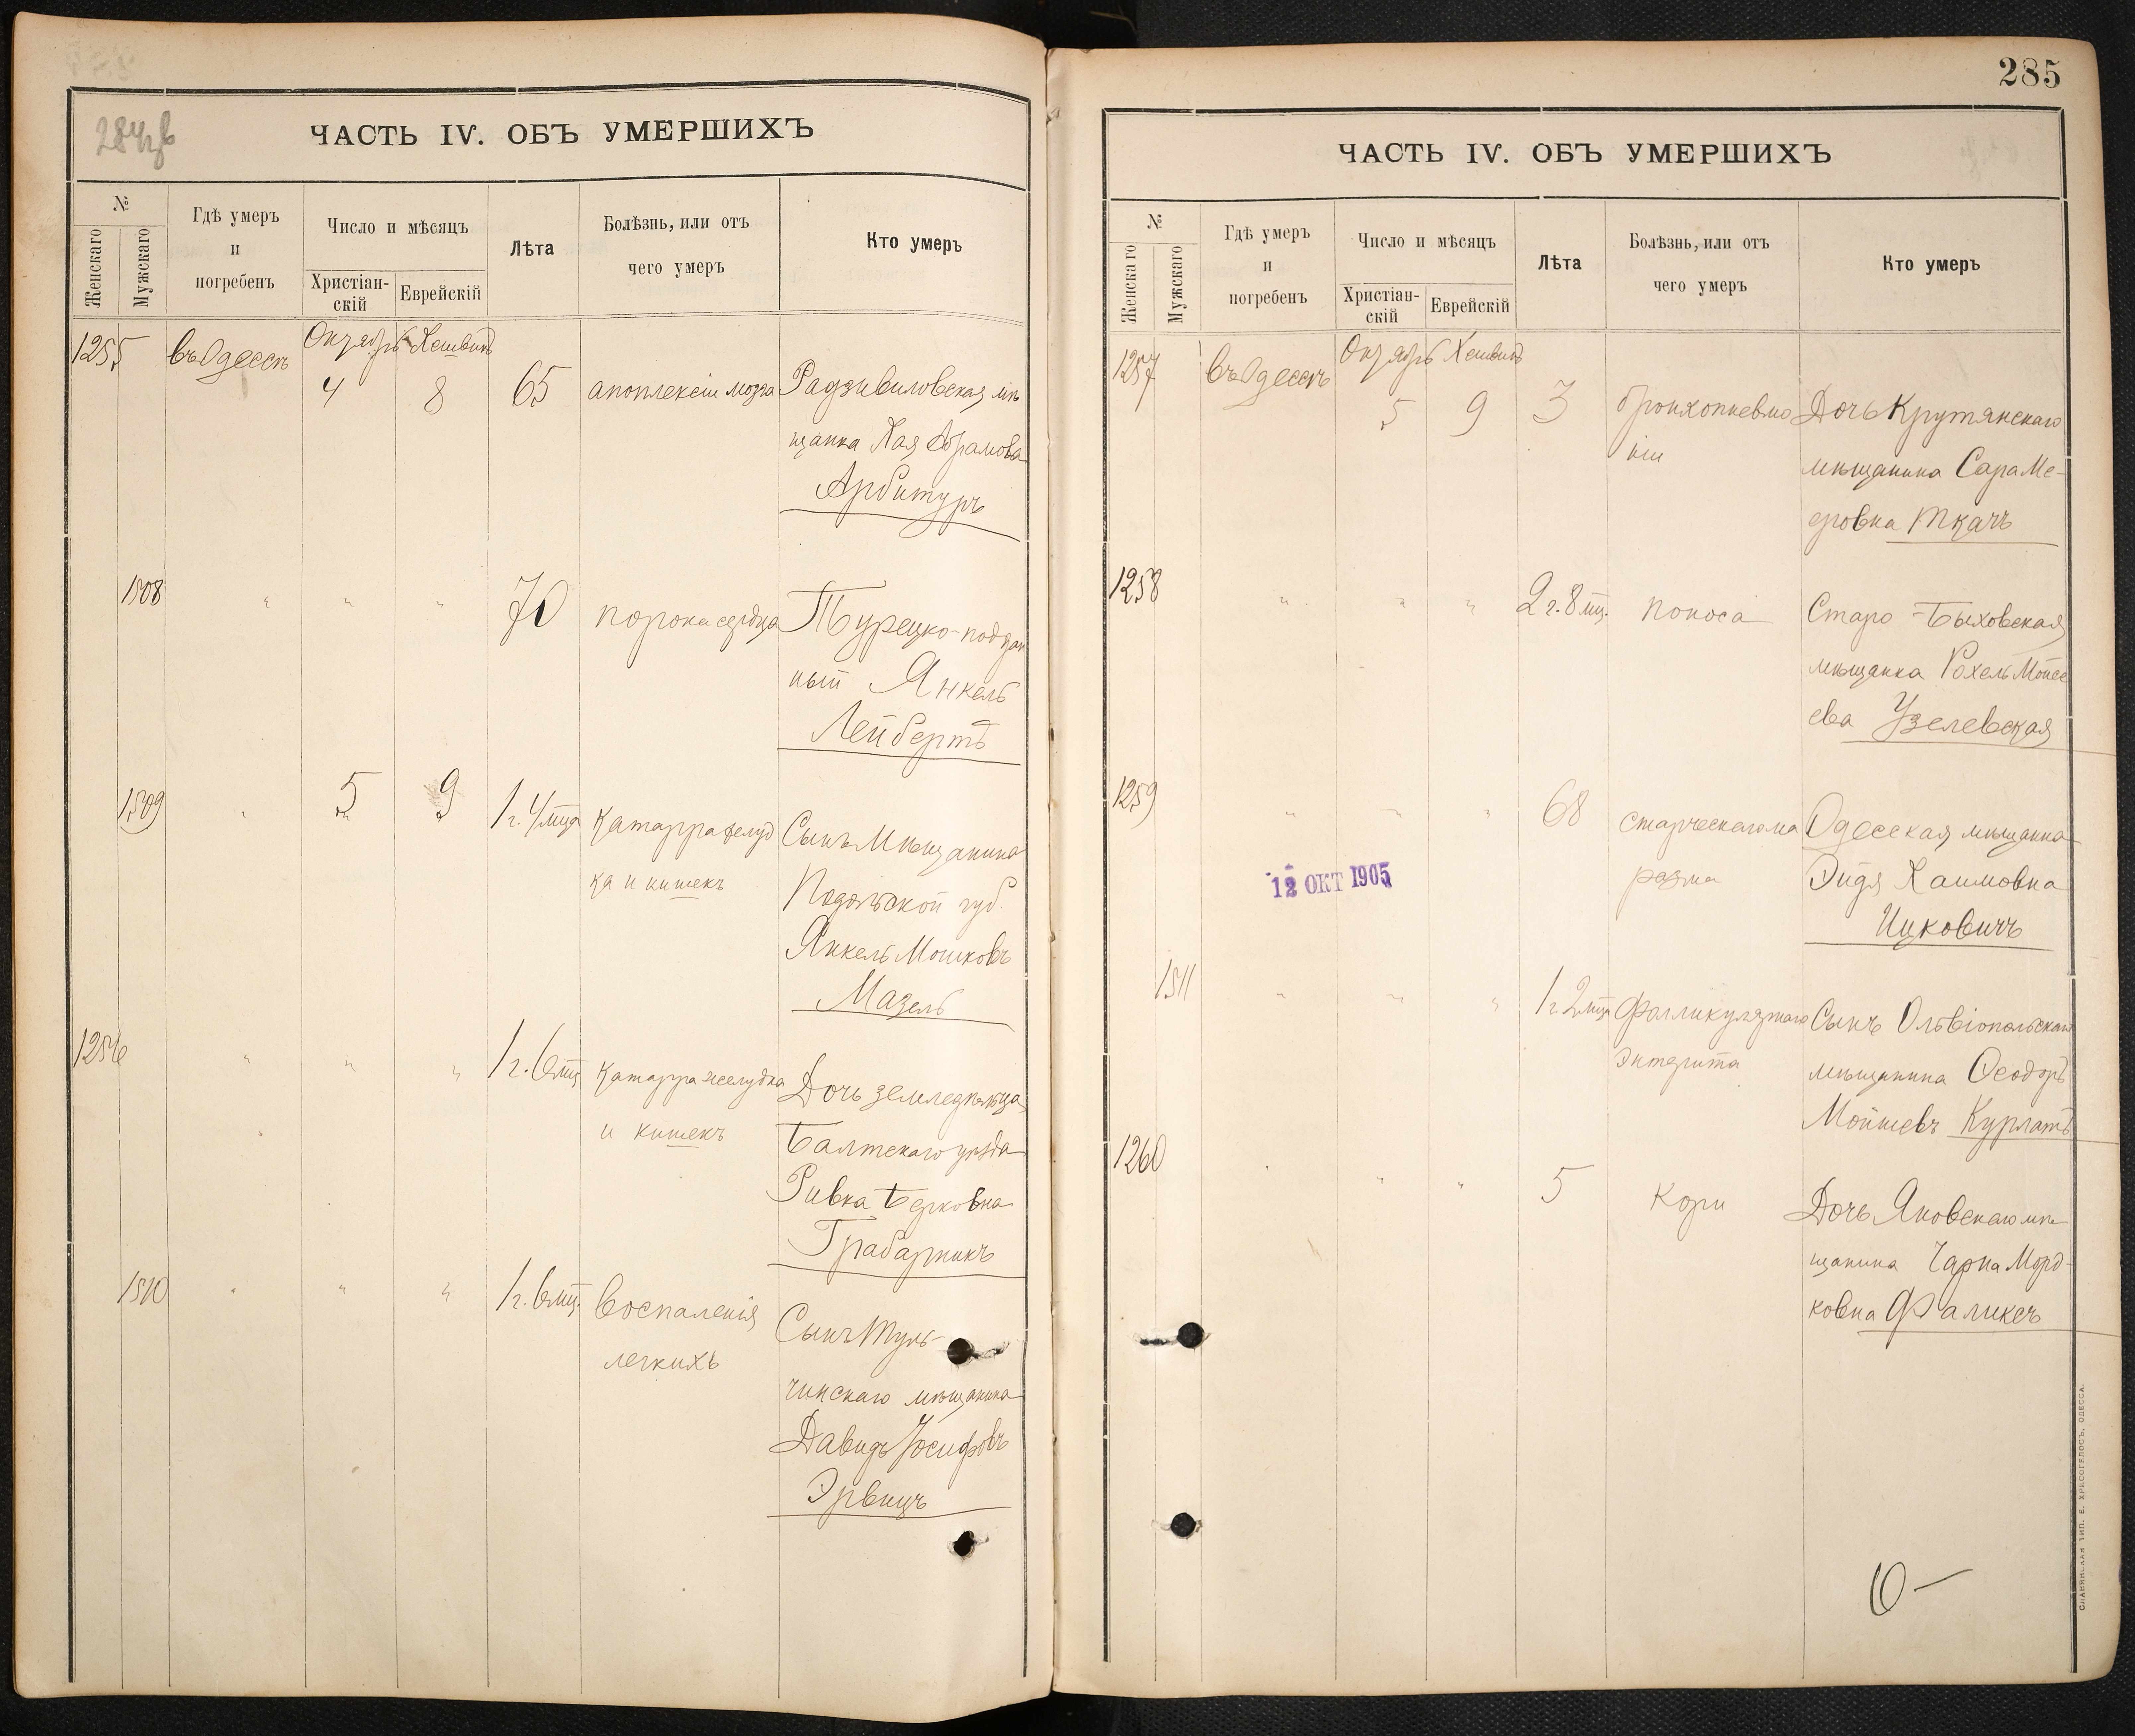 ЧАСТЬ IV. ОБЪ УМЕРШИХЪ
№
Женскаго
Мужскаго
Гдѣ умеръ
и
погребенъ
Число и мѣсяцъ
Христіан-
скій
Еврейскій
Лѣта
Болѣзнь, или отъ
чего умеръ
Кто умеръ
1255 въ Одессѣ Октябрь Хешвинъ
4 8 65 апоплексіи мозга Радзивиловская мѣ
щанка Хая Абрамова
Арбитуръ
1508 " " " 70 порока сердца Турецко-поддан
ный Янкель
Лейбертъ
1509 " 5 9 1 г. 4 мца Катарра желуд
ка и кишекъ
Сынъ Мѣщанина
Подольской губ.
Янкель Мошковъ
Мазель
1256 " " " 1 г. 6 мц Катарра желудка
и кишекъ
Дочь земледѣльца
Балтскаго уѣзда
Ривка Берковна
Грабарникъ
1510 " " " 1 г. 6 мц. Воспаленія
легкихъ
Сынъ Туль-
чинскаго мѣщанина
Давидъ Іосифовъ
Эрвицъ
285
ЧАСТЬ IV. ОБЪ УМЕРШИХЪ
№
Женскаго
Мужскаго
Гдѣ умеръ
и
погребенъ
Число и мѣсяцъ
Христіан-
скій
Еврейскій
Лѣта
Болѣзнь, или отъ
чего умеръ
Кто умеръ
1257 въ Одессѣ Октябрь Хешвинъ
5 9 3 бронхопневмо
ніи
Дочь Крутянскаго
мѣщанина Сара Ме-
еровна Ткачъ
1258 " " " 2 г. 8 мц. поноса Старо-Быховская
мѣщанка Рохель Мойсе
ева Узелевская
1259 " " " 68 старческаго ма
разма
Одесская мѣщанка
Эйдя Хаимовна
Ицковичъ
12 ОКТ 1905
1511 " " " 1 г 2 мца Фолликулярнаго
Энтерита
Сынъ Ольвіопольскаго
мѣщанина Ѳеодоръ
Мойшевъ Курлатъ
1260 " " " 5 Кори Дочь Яновскаго мѣ-
щанина Чарна Морд-
ковна Фаликсъ
СЛАВЯНСКАЯ ТИП. Е. ХРИСОГЕЛОСЪ, ОДЕССА.